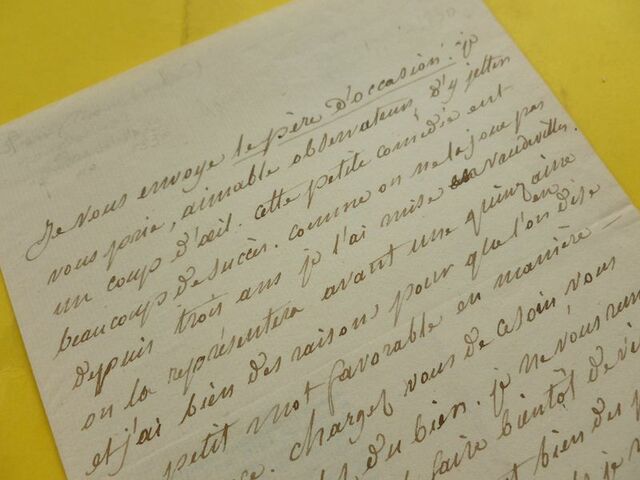 je vous envoye le père d'occasion. je
vous prie, aimable observateur, d'y jetter
un coup d'œil. cette petite comédie eut
beaucoup de succès. comme on ne la joue pas
depuis trois ans je l'ai mise en vaudeville.
on la représentera avant une quinzaine
et j'ai bien des raison pour que l'on en dise
petit mot favorable en manière
chargez vous de ce soin, vous
du bien. je ne vous
faire bientôt de
bien des